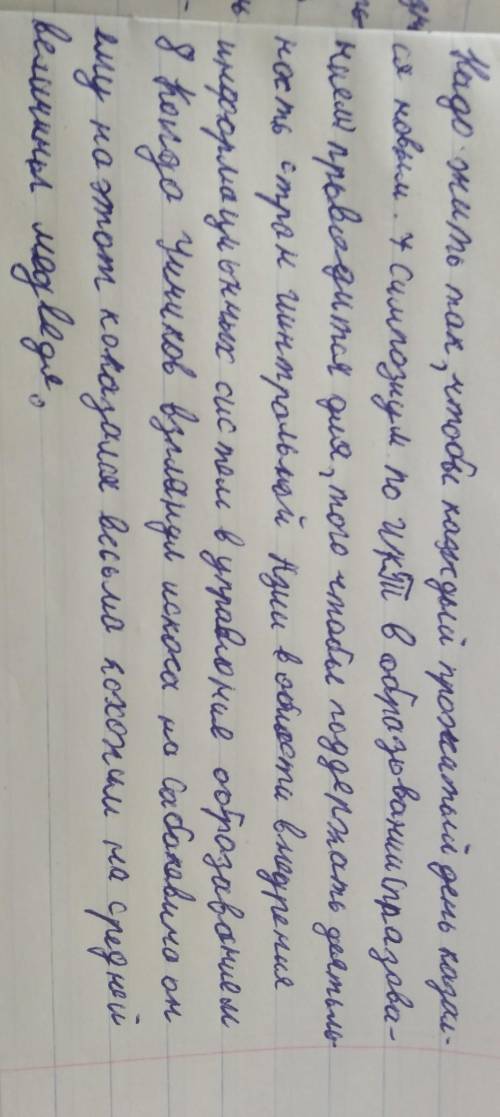 Надо жить так, чтобы каждый прожитый день казал-
ся новым. 7 симпозиум по ИКТ в образовании (празова-
нием) проводится для, того чтобы поддержать деятель
ность стран Центральной Азии в области внедрения
информационных систем в управление образованием
8 Когда Чичиков взглянул искоса на Сабакевича он
ему на этот показался весьма похожим на средней
величины медведя.